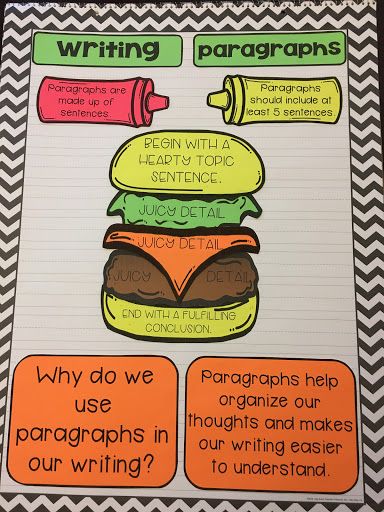 writing paragraphs
Paragraphs are
made up of
sentences.
Paragraphs
should include at
least 5 sentences.
BEGIN WITH A
HEARTY TOPIC
SENTENCE.
JUICY DETAIL
JUICY DETAIL
JUICY DETAIL
END WITH A FULFILLING
CONCLUSION.
Why do we
use
paragraphs in
our writing?
Paragraphs help
organize our
thoughts and makes
our writing easier
to understand.